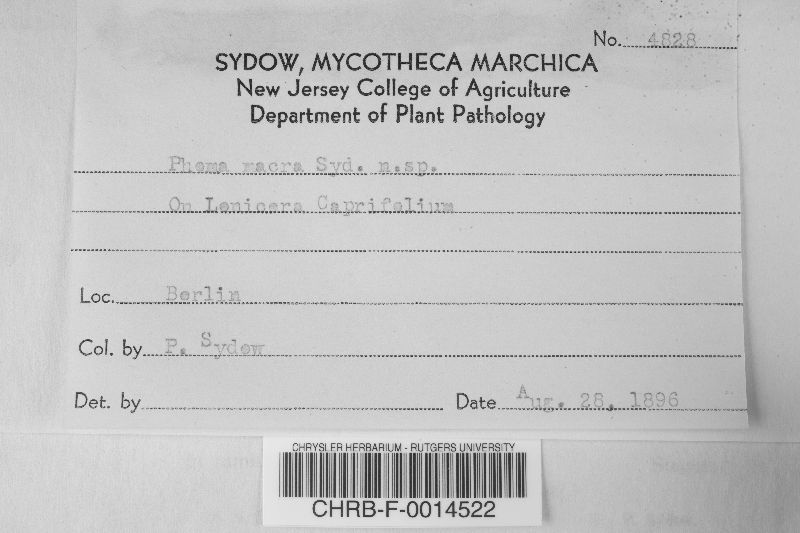 No. 4828
SYDOW, MYCOTHECA MARCHICA
New Jersey College of Agriculture
Department of Plant Pathology
Phoma macra Syd. n.sp.
On Lonicera Caprifolium
Loc. Berlin
Col. by P. Sydow
Det. by
Date Aug. 28, 1896
CHRYSLER HERBARIUM - RUTGERS UNIVERSITY
CHRB-F-0014522